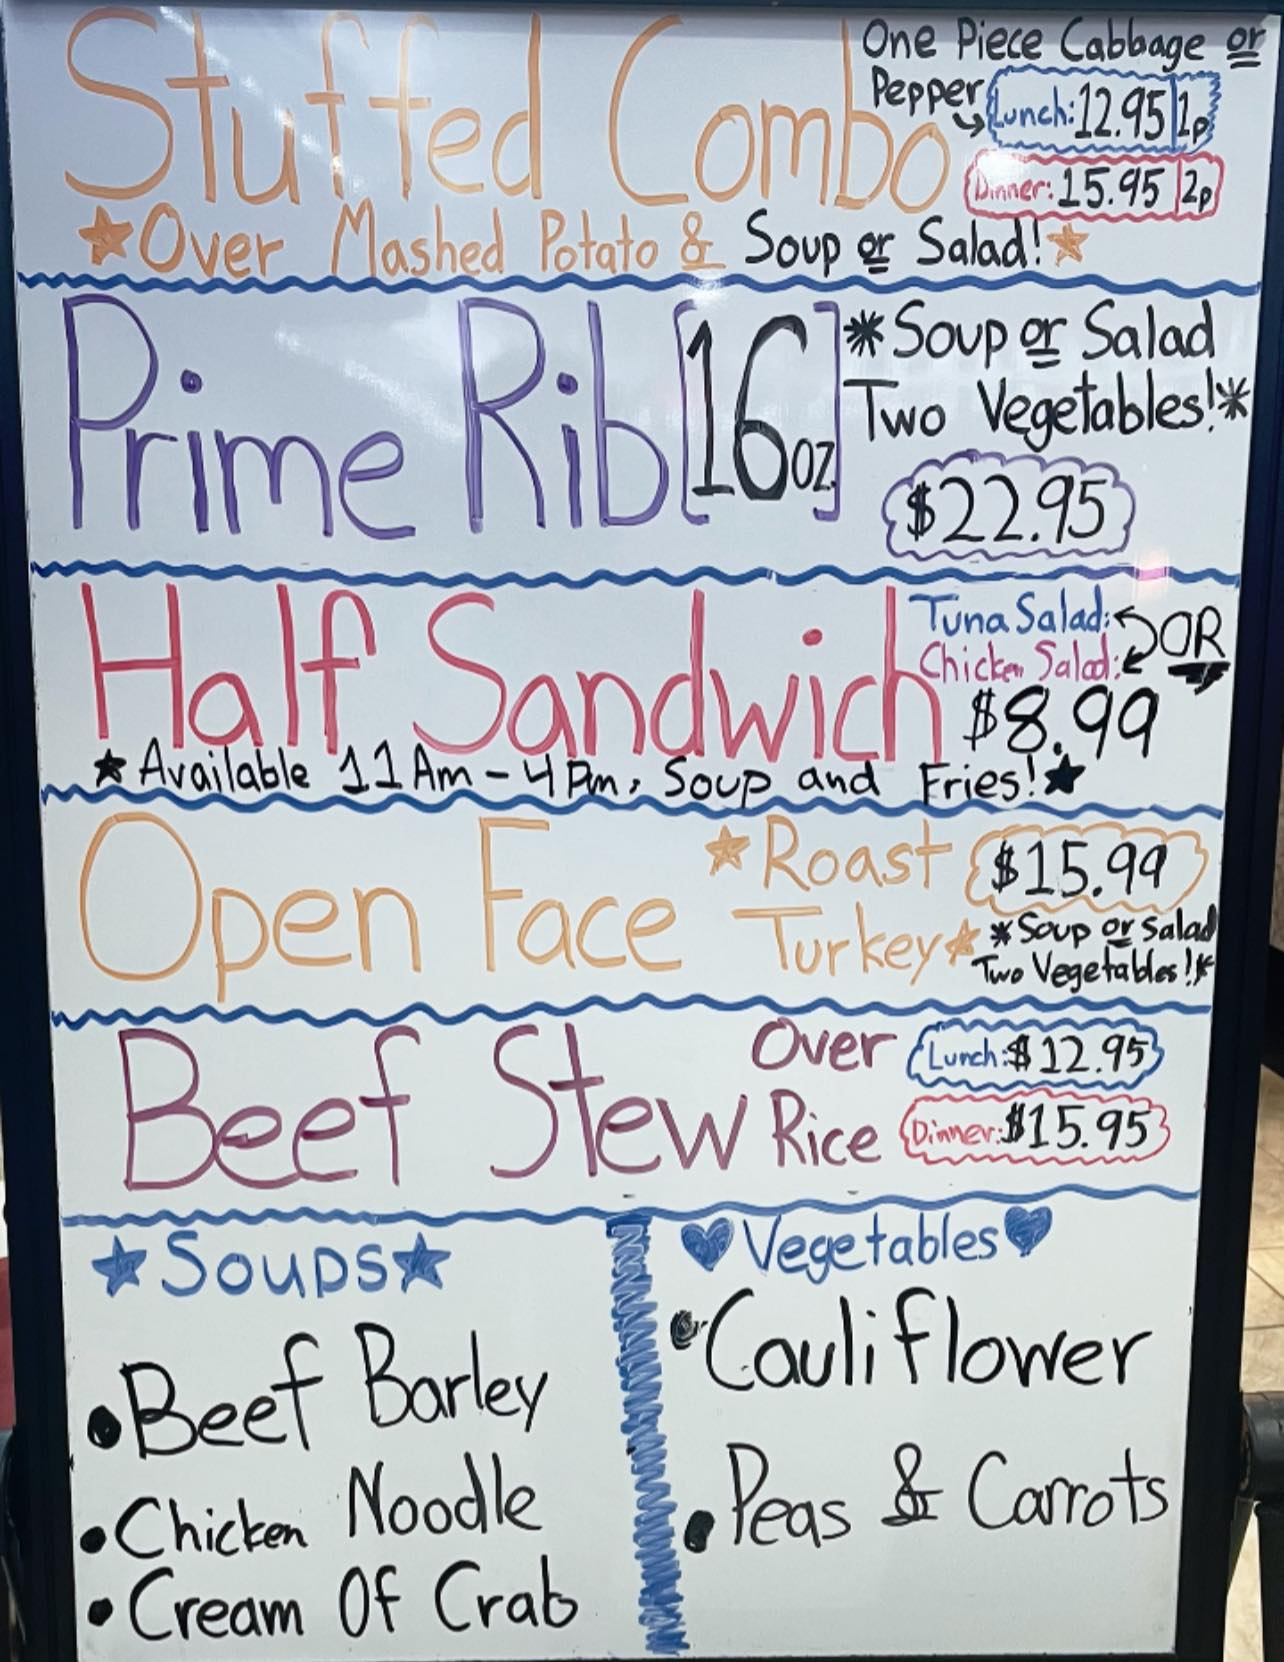 Stuffed Combo
One Piece Cabbage or
Pepper
Lunch: 12.95 1p
Dinner: 15.95 2p
Over Mashed Potato & Soup or Salad!
Prime Rib [16oz.]
*Soup or Salad
Two Vegetables!*
$22.95
Half Sandwich
Tuna Salad:
Chicken Salad:
OR
$8.99
Available 11Am - 4Pm, Soup and Fries!
Open Face
Roast
Turkey
$15.99
*Soup or Salad
Two Vegetables!*
Beef Stew
Over
Rice
Lunch: $12.95
Dinner: $15.95
Soups
• Beef Barley
• Chicken Noodle
• Cream Of Crab
Vegetables
• Cauliflower
• Peas & Carrots